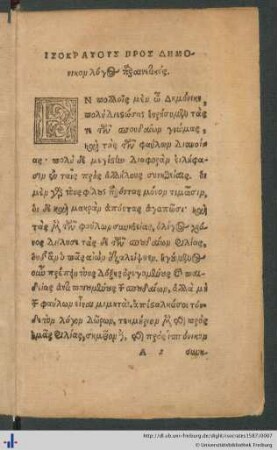 ΙΣΟΚΡΑΤΟΥΣ ΠΡΟΣ ΔΗΜΟ-
νικον λόγος παραινετικός.
ΕΝ πολλοῖς μὲν ὦ Δημόνικε,
πολὺ διεστώσας εὑρήσομεν τάς
τε τῶν σπουδαίων γνώμας,
καὶ τὰς τῶν φαύλων διανοί
ας· πολὺ δὲ μεγίστην διαφορὰν εἰλήφα-
σιν ἐν ταῖς πρὸς ἀλλήλους συνηθείαις. οἱ
μὲν γὰρ τοὺς φίλους παρόντας μόνον τιμῶσιν,
οἱ δὲ καὶ μακρὰν ἀπόντας ἀγαπῶσι· καὶ
τὰς μὲν τῶν φαύλων συνηθείας, ὀλίγος χρό
νος διέλυσε· τὰς δὲ τῶν σπουδαίων φιλίας,
οὐδ' ἂν ὁ πᾶς αἰὼν ἐξαλείψειεν. ἡγούμενος
οὖν πρέπειν τοὺς δόξης ὀρεγομένους καὶ παι-
δείας ἀντιποιουμένους τῶν σπουδαίων, ἀλλὰ μὴ
τῶν φαύλων εἶναι μιμητάς. ἀπέσταλκά σοι τόν-
δε τὸν λόγον δῶρον, τεκμήριον μὲν τῆς πρὸς
ὑμᾶς φιλίας, σημεῖον δὲ τῆς πρὸς ἱππόνικον
A 2 συνη-
http://dl.ub.uni-freiburg.de/diglit/isocrates1587/0007
© Universitätsbibliothek Freiburg